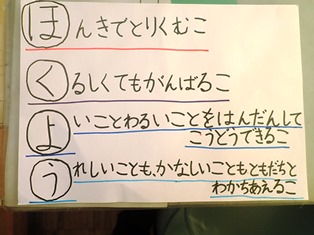 ほんきでとりくむこ
くるしくてもがんばるこ
よいことわるいことをはんだんして
こうどうできるこ
うれしいことも、かなしいこともともだちと
わかちあえるこ